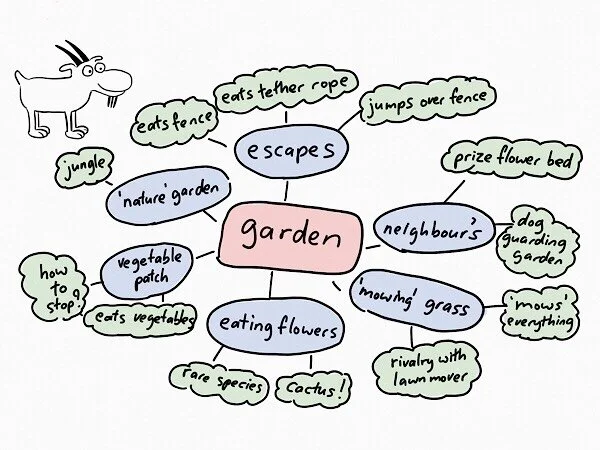 eats tether rope
jumps over fence
eats fence
escapes
prize flower bed
jungle
'nature' garden
garden
neighbour's
dog
guarding
garden
vegetable
patch
how
to
stop?
eats vegetables
eating flowers
'mowing' grass
'mows'
everything
rare species
cactus!
rivalry with
lawn mover